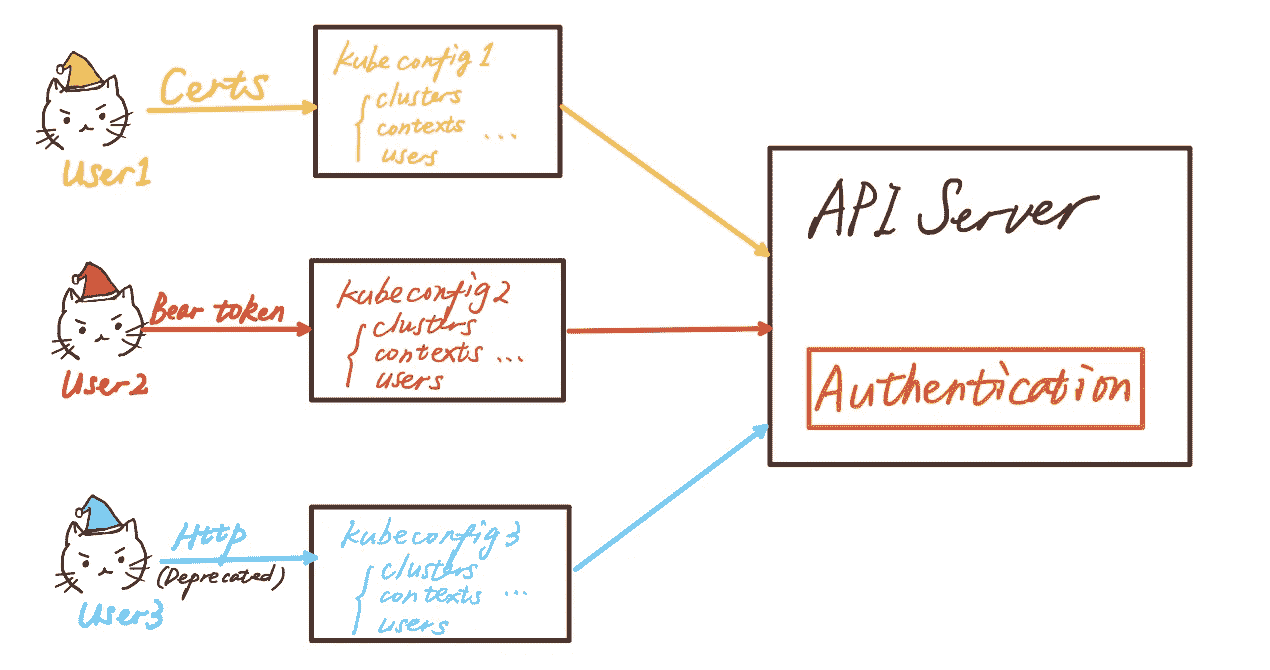 Certs
User1
kubeconfig1
clusters
contexts ...
users
Bear token
User2
kubeconfig2
clusters
contexts ...
users
Http
(Deprecated)
User3
kubeconfig3
clusters
contexts ...
users
API Server
Authentication